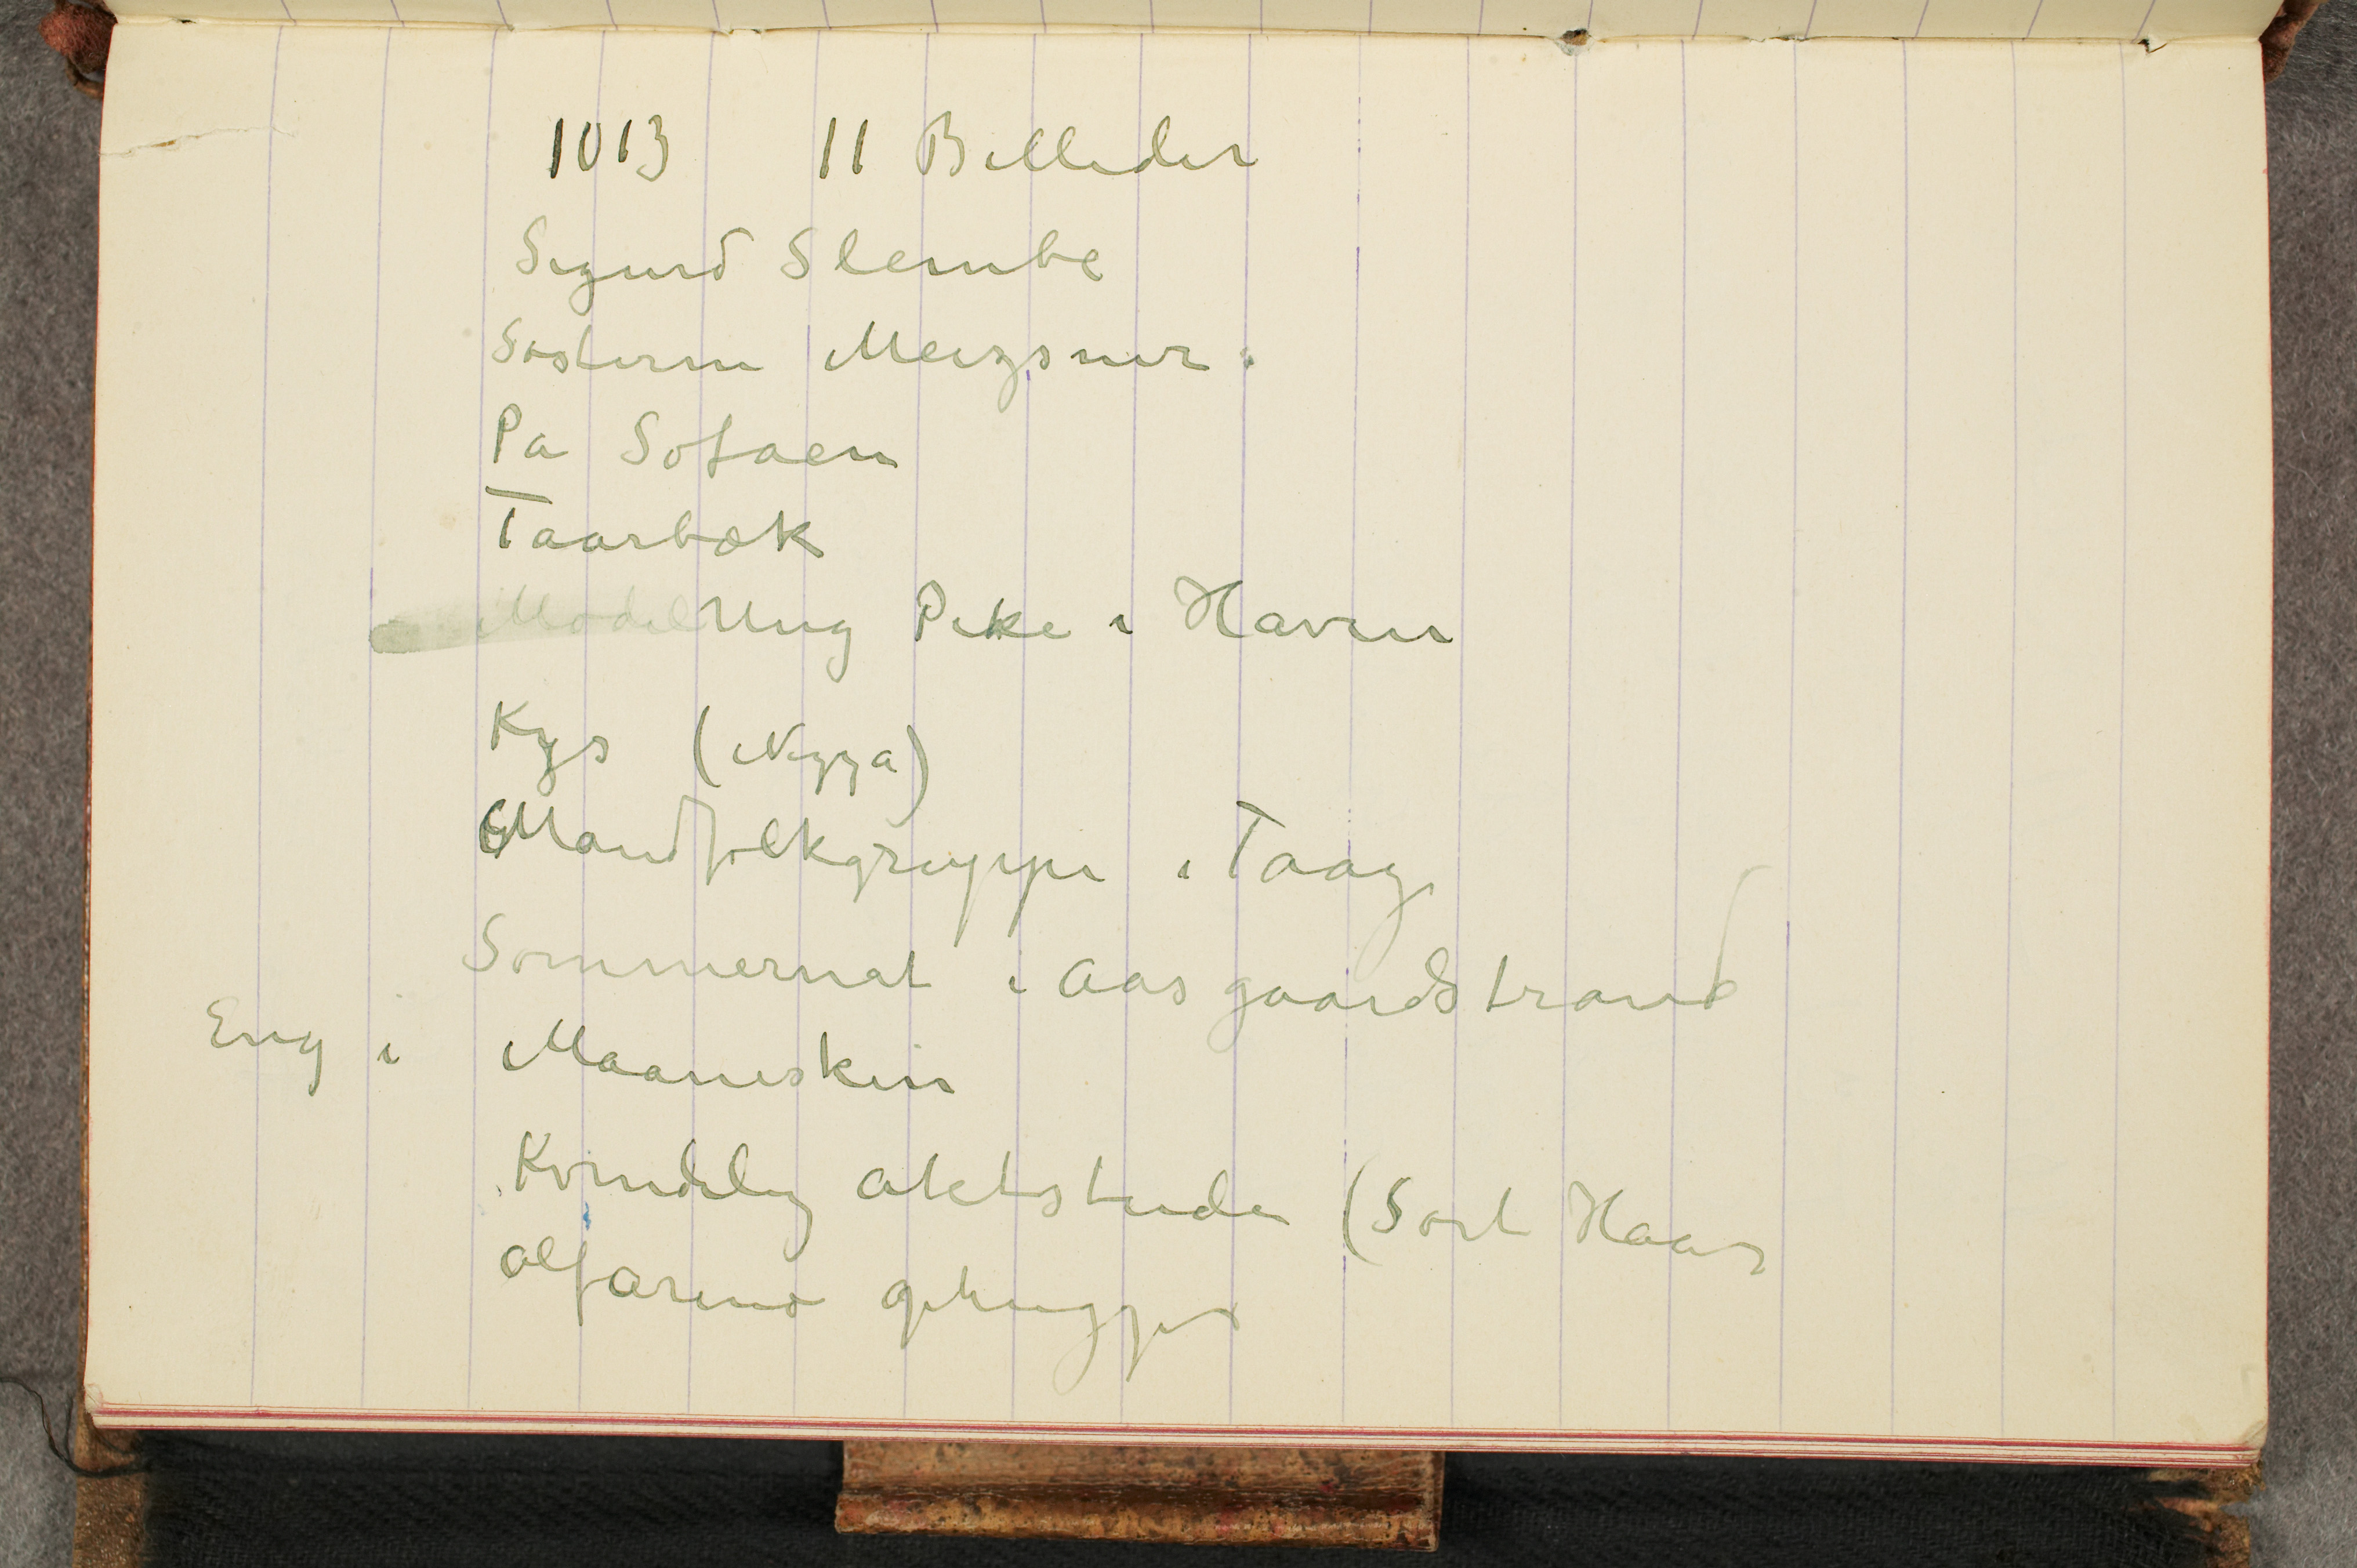 1013 11 Billeder
Sigurd Slembe
Søstrene Meizsner.
Pa Sofaen
Taarbæk
Model Ung Pike i Haven
Kys (Nizza)
Mandfolkgruppe i Taage
Sommernat i Aasgaardstrand
Eng i Maaneskin
Kvindelig aktstudie (Sort Haar